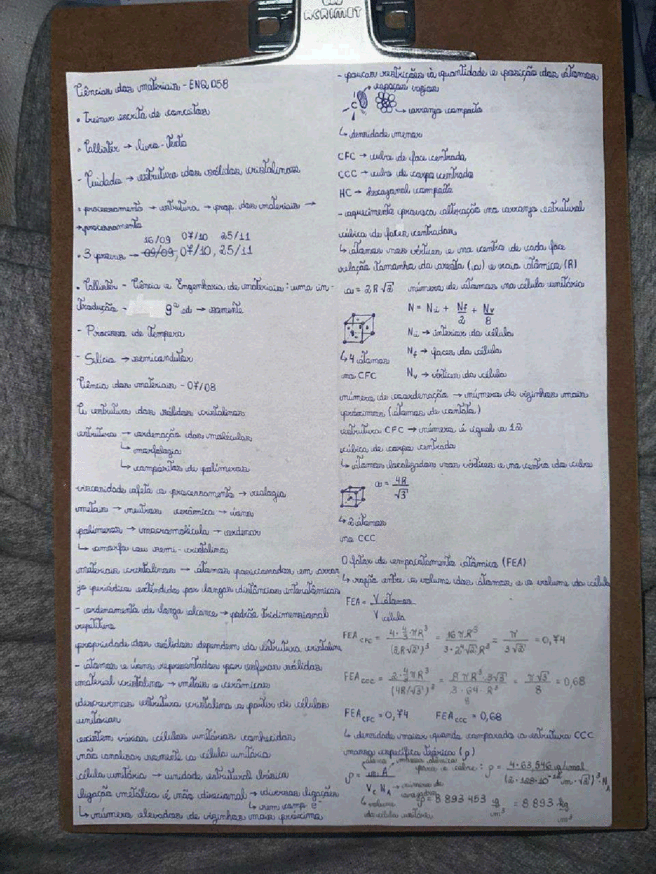 ACRIMET
Ciências dos materiais - ENG 058
• Treinar escrita de conceitos
• Callister → livro-texto
- Cuidado → estrutura dos sólidos cristalinos
• processamento → estrutura → prop. dos materiais →
→ processamento
16/09 07/10 25/11
• 3 provas → 09/09, 07/10, 25/11
• Callister - Ciência e Engenharia de materiais: uma in-
trodução - 9ª ed → somente
- Processo de Tempera
- Silício → semicondutor
Ciência dos materiais - 07/08
estrutura dos sólidos cristalinos
estrutura → ordenação das moléculas
↳ morfologia
↳ compósitos de polímeros
viscosidade afeta o processamento → reologia
metais → neutros cerâmica → íons
polímeros → macromolécula → ordenar
↳ amorfo ou semi-cristalino
materiais cristalinos → átomos posicionados em arran
jo periódico estendido por longas distâncias interatômicas
- ordenamento de longo alcance → padrão tridimensional
repetitivo
propriedade dos sólidos dependem da estrutura cristalina
- átomos e íons representados por esferas sólidas
material cristalino → metais e cerâmicas
descrevemos estrutura cristalina a partir de células
unitárias
existem várias células unitárias conhecidas
não analisar somente a célula unitária
célula unitária → unidade estrutural básica
ligação metálica é não direcional → diversas ligações
↳ sem comp e⁻
↳ números elevados de vizinhos mais próximos
- poucas restrições à quantidade e posição dos átomos
→ espaços vazios
C
→ arranjo compacto
↳ densidade menor
CFC → cubo de face centrada
CCC → cubo de corpo centrado
HC → hexagonal compacta
- aquecimento provoca alteração no arranjo estrutural
cúbica de faces centradas
↳ átomos nos vértices e no centro de cada face
relação tamanho da aresta (a) e raio atômico (R)
a = 2R√2 número de átomos na célula unitária
N = Ni + Nf/2 + Nv/8
Ni → interior da célula
↳ 4 átomos Nf → faces da célula
na CFC Nv → vértices da célula
número de coordenação → número de vizinhos mais
próximos (átomos de contato)
estrutura CFC → número é igual a 12
cúbica de corpo centrado
↳ átomos localizados nos vértices e no centro do cubo
a = 4R/√3
↳ 2 átomos
na CCC
O fator de empacotamento atômico (FEA)
↳ razão entre o volume dos átomos e o volume da célula
FEA = V átomos / V célula
FEA CFC = 4·4/3πR³/(2R√2)³ = 16πR³/3·2⁴√2R³ = π/3√2 = 0,74
FEA CCC = 2·4/3πR³/(4R/√3)³ = 8πR³·3√3/3·64·R³ = π√3/8 = 0,68
8
FEA CFC = 0,74 FEA CCC = 0,68
↳ densidade maior quando comparada a estrutura CCC
massa específica teórica (ρ)
ρ = n A / Vc NA para o cobre: ρ = 4·63,546 g/mol
↳ volume da célula unitária
ρ = 8 893 453 g/m³ = 8 893 kg/m³